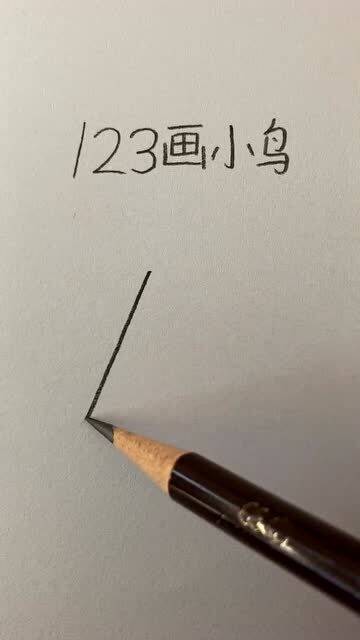 123画小鸟